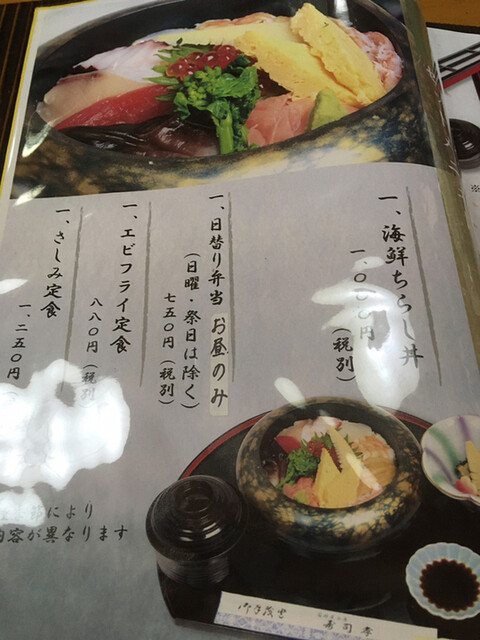 一、海鮮ちらし丼
一、〇〇〇円(税別)
一、日替り弁当 お昼のみ
(日曜・祭日は除く)
七五〇円(税別)
一、エビフライ定食
八八〇円(税別
一、さしみ定食
一、二五〇円
により
内容が異なります
※
寿司